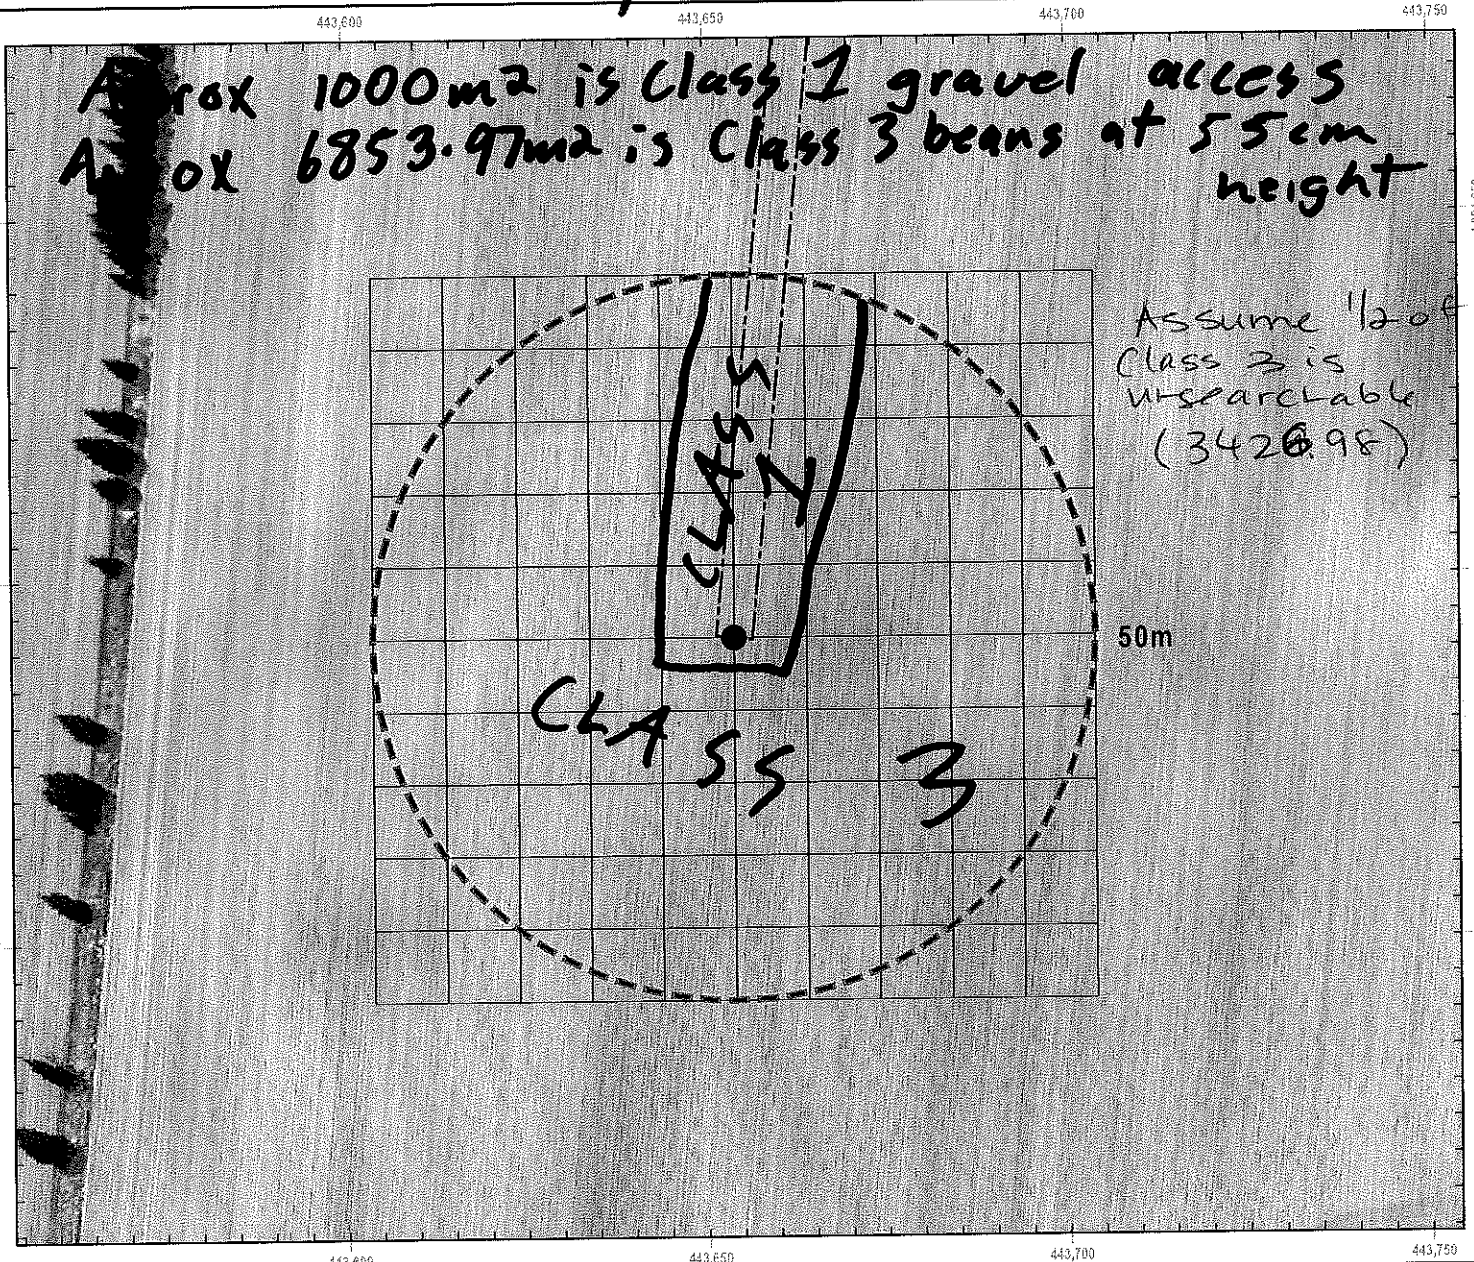 443,600 443,650 443,700 443,750
Aprox 1000m2 is Class 1 gravel access
Aprox 6853.97m2 is Class 3 beans at 55cm
height
Assume 1/2 of
Class 3 is
unsearchable
(3426.98)
CLASS
1
50m
CLASS 3
443,600 443,650 443,700 443,750